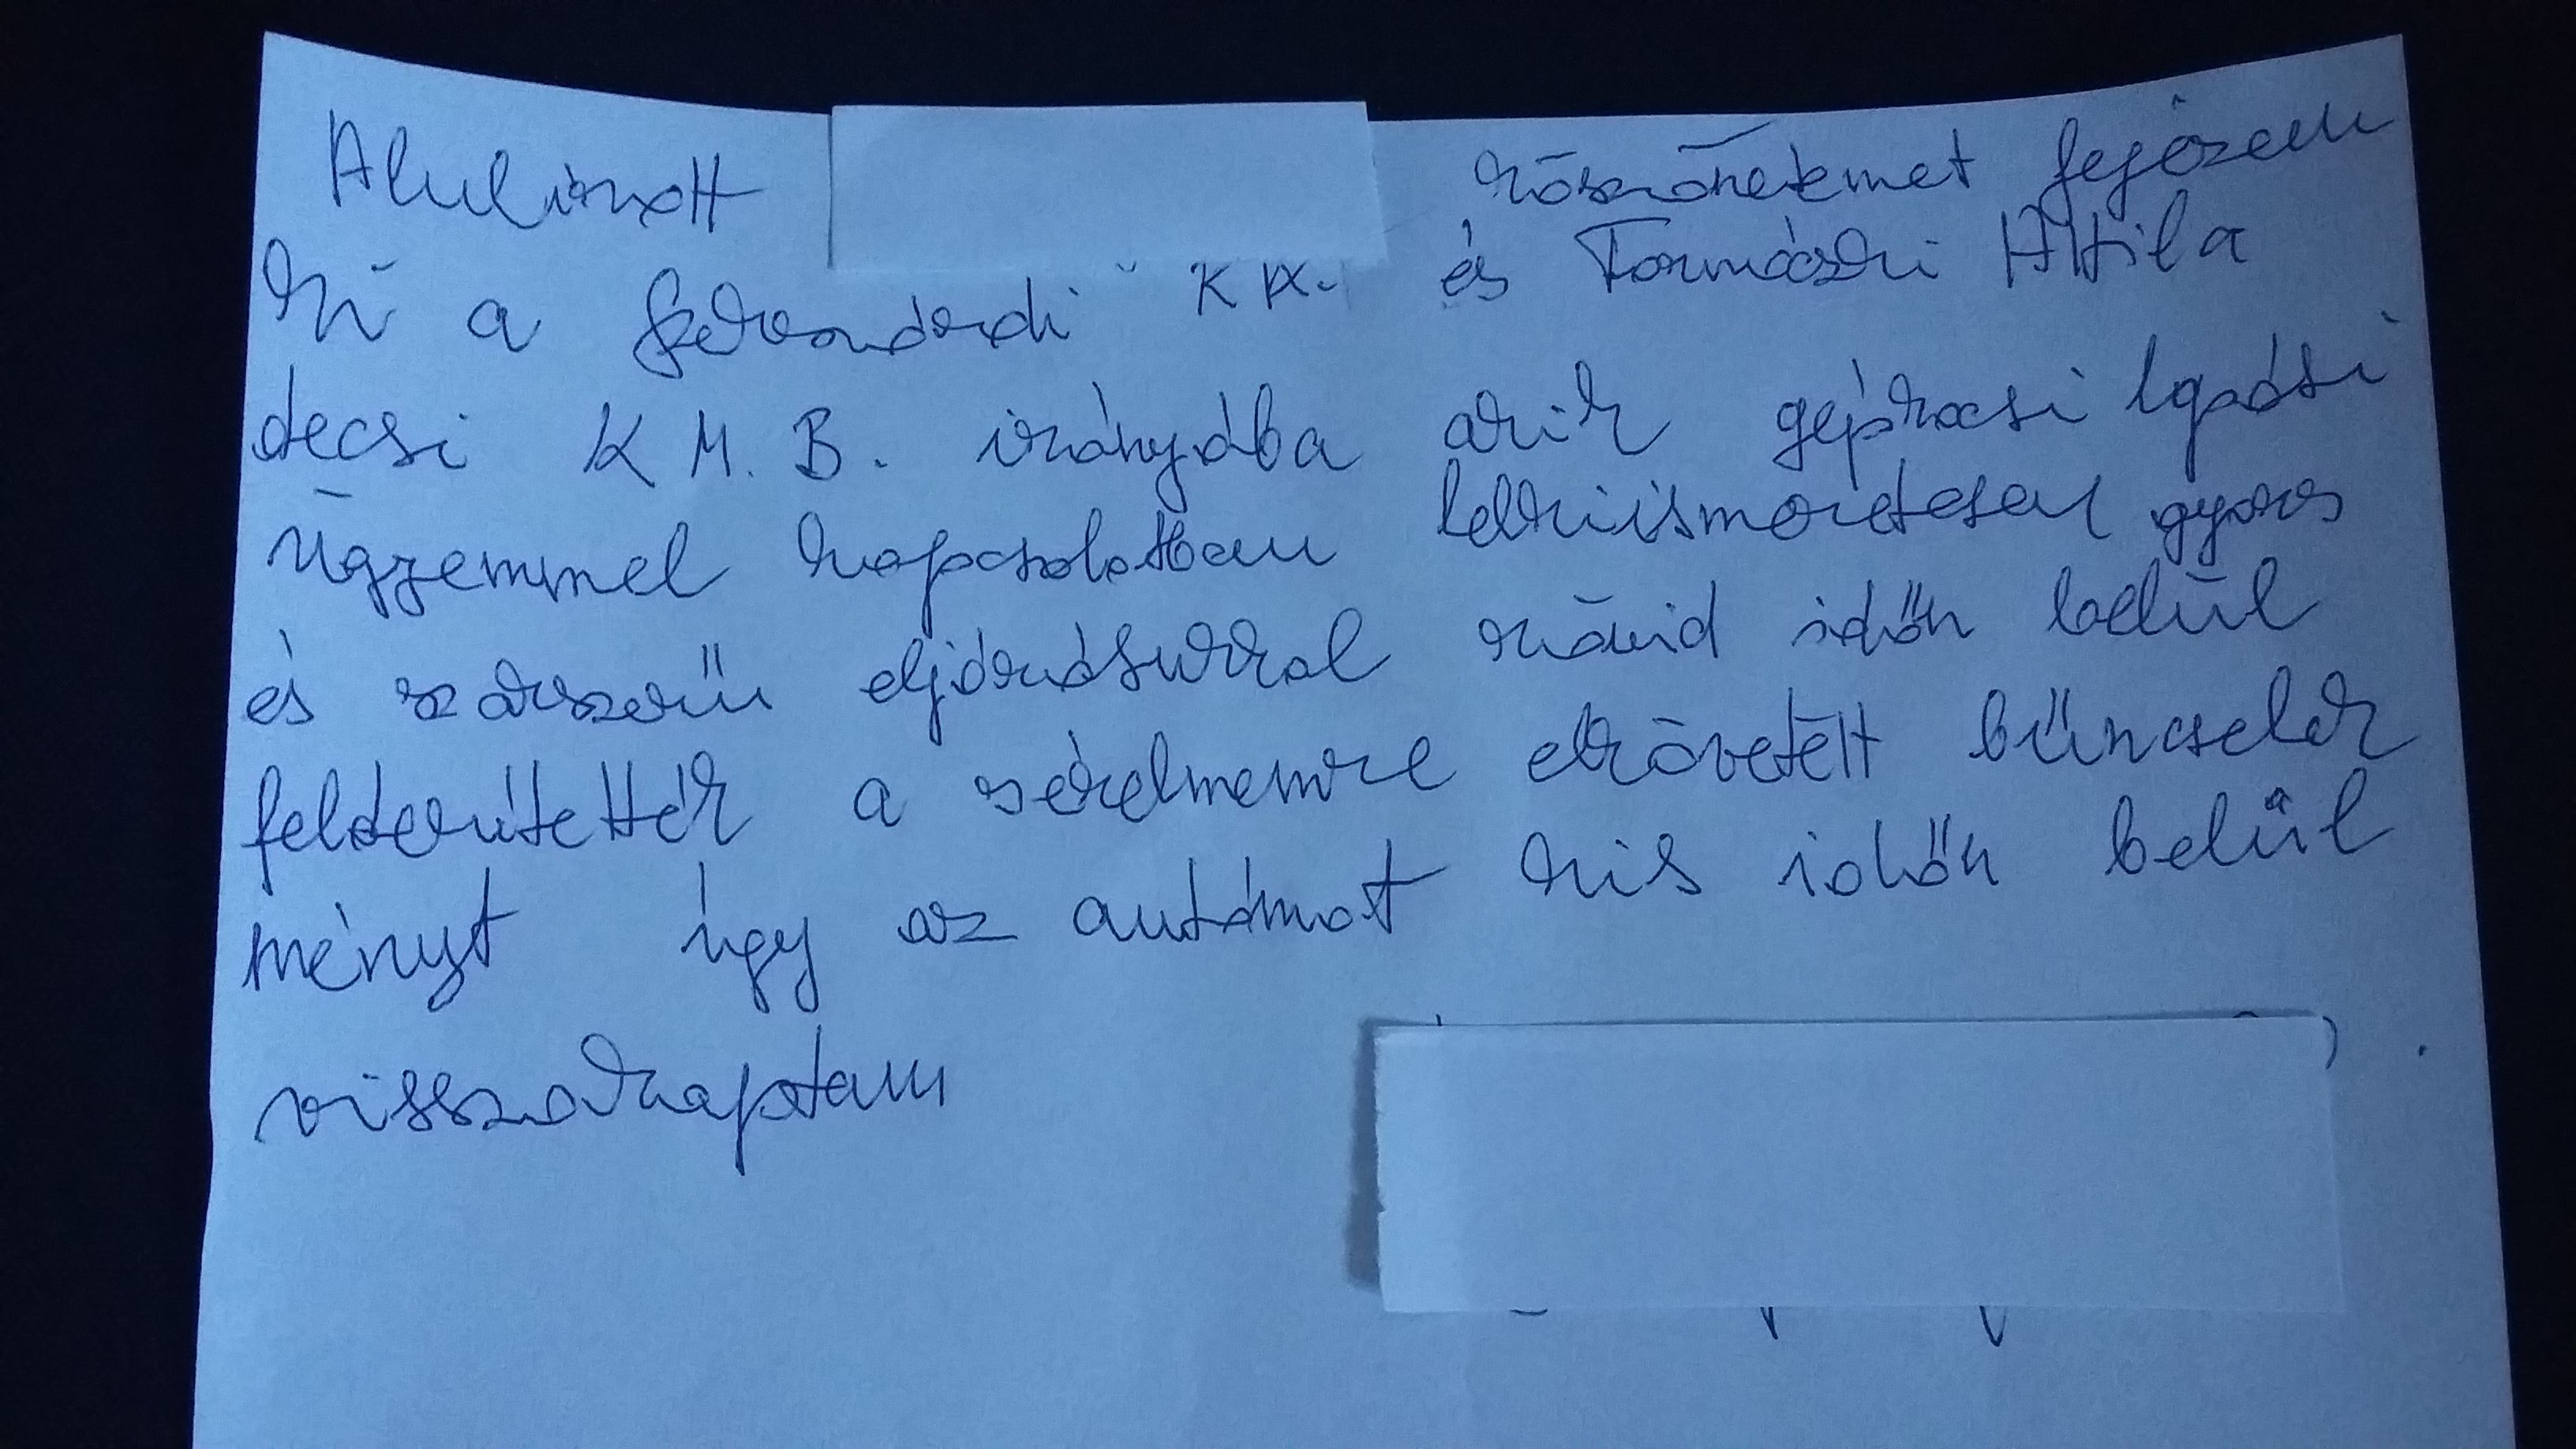 Alulírott köszönetemet fejezem
ki a Szekszárdi RK. és Tormási Attila
decsi KMB. irányába akik gépkocsi lopási
ügyemmel kapcsolatban lelkiismeretesen gyors
és szakszerű eljárásukkal rövid időn belül
felderítették a sérelmemre elkövetett bűncselek
ményt így az autómat kis időn belül
visszakaptam